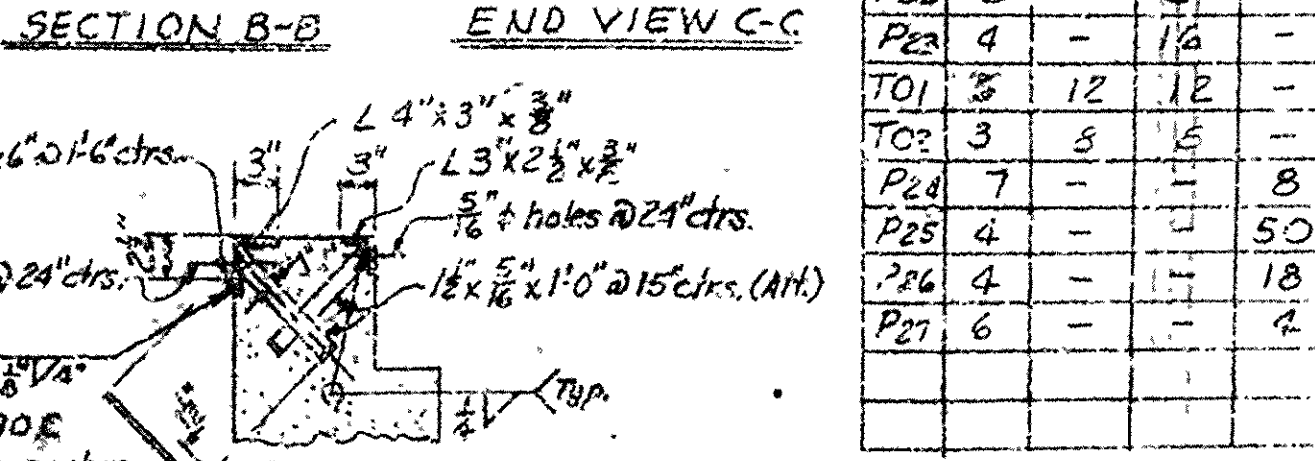 SECTION B-B
END VIEW C-C
L 4" x 3" x 3/8"
6" @ 1'-6" ctrs.
3"
3"
L 3" x 2 1/2" x
5/16" ϕ holes @ 24" ctrs.
@ 24" ctrs.
1 1/2" x 5/16" x 1'-0" @ 15" ctrs. (Alt.)
1/8" 4"
1/4 Typ.
P23 4 - 16 -
T01 12 12 -
T02 3 8 -
P24 7 - - 8
P25 4 - - 50
P26 4 - - 18
P27 6 - -